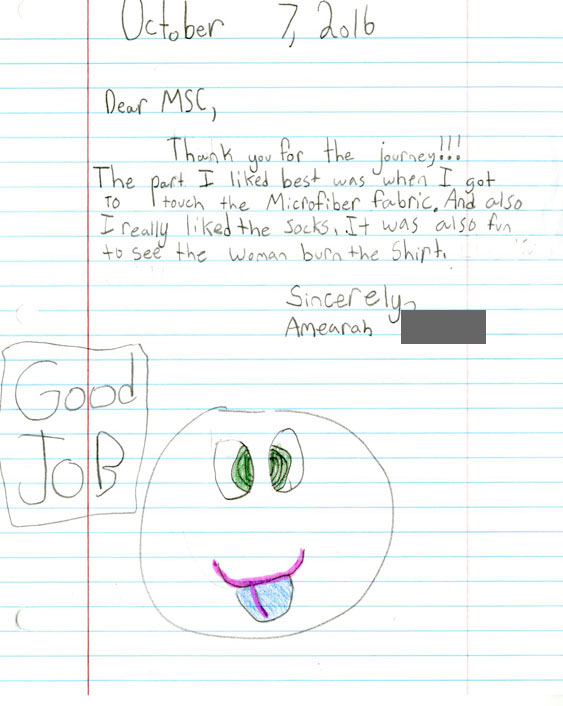 October 7, 2016
Dear MSC,
Thank you for the journey!!!
The part I liked best was when I got
to touch the Microfiber fabric. And also
I really liked the socks. It was also fun
to see the woman burn the shirt.
Sincerely,
Amearah
Good
JoB